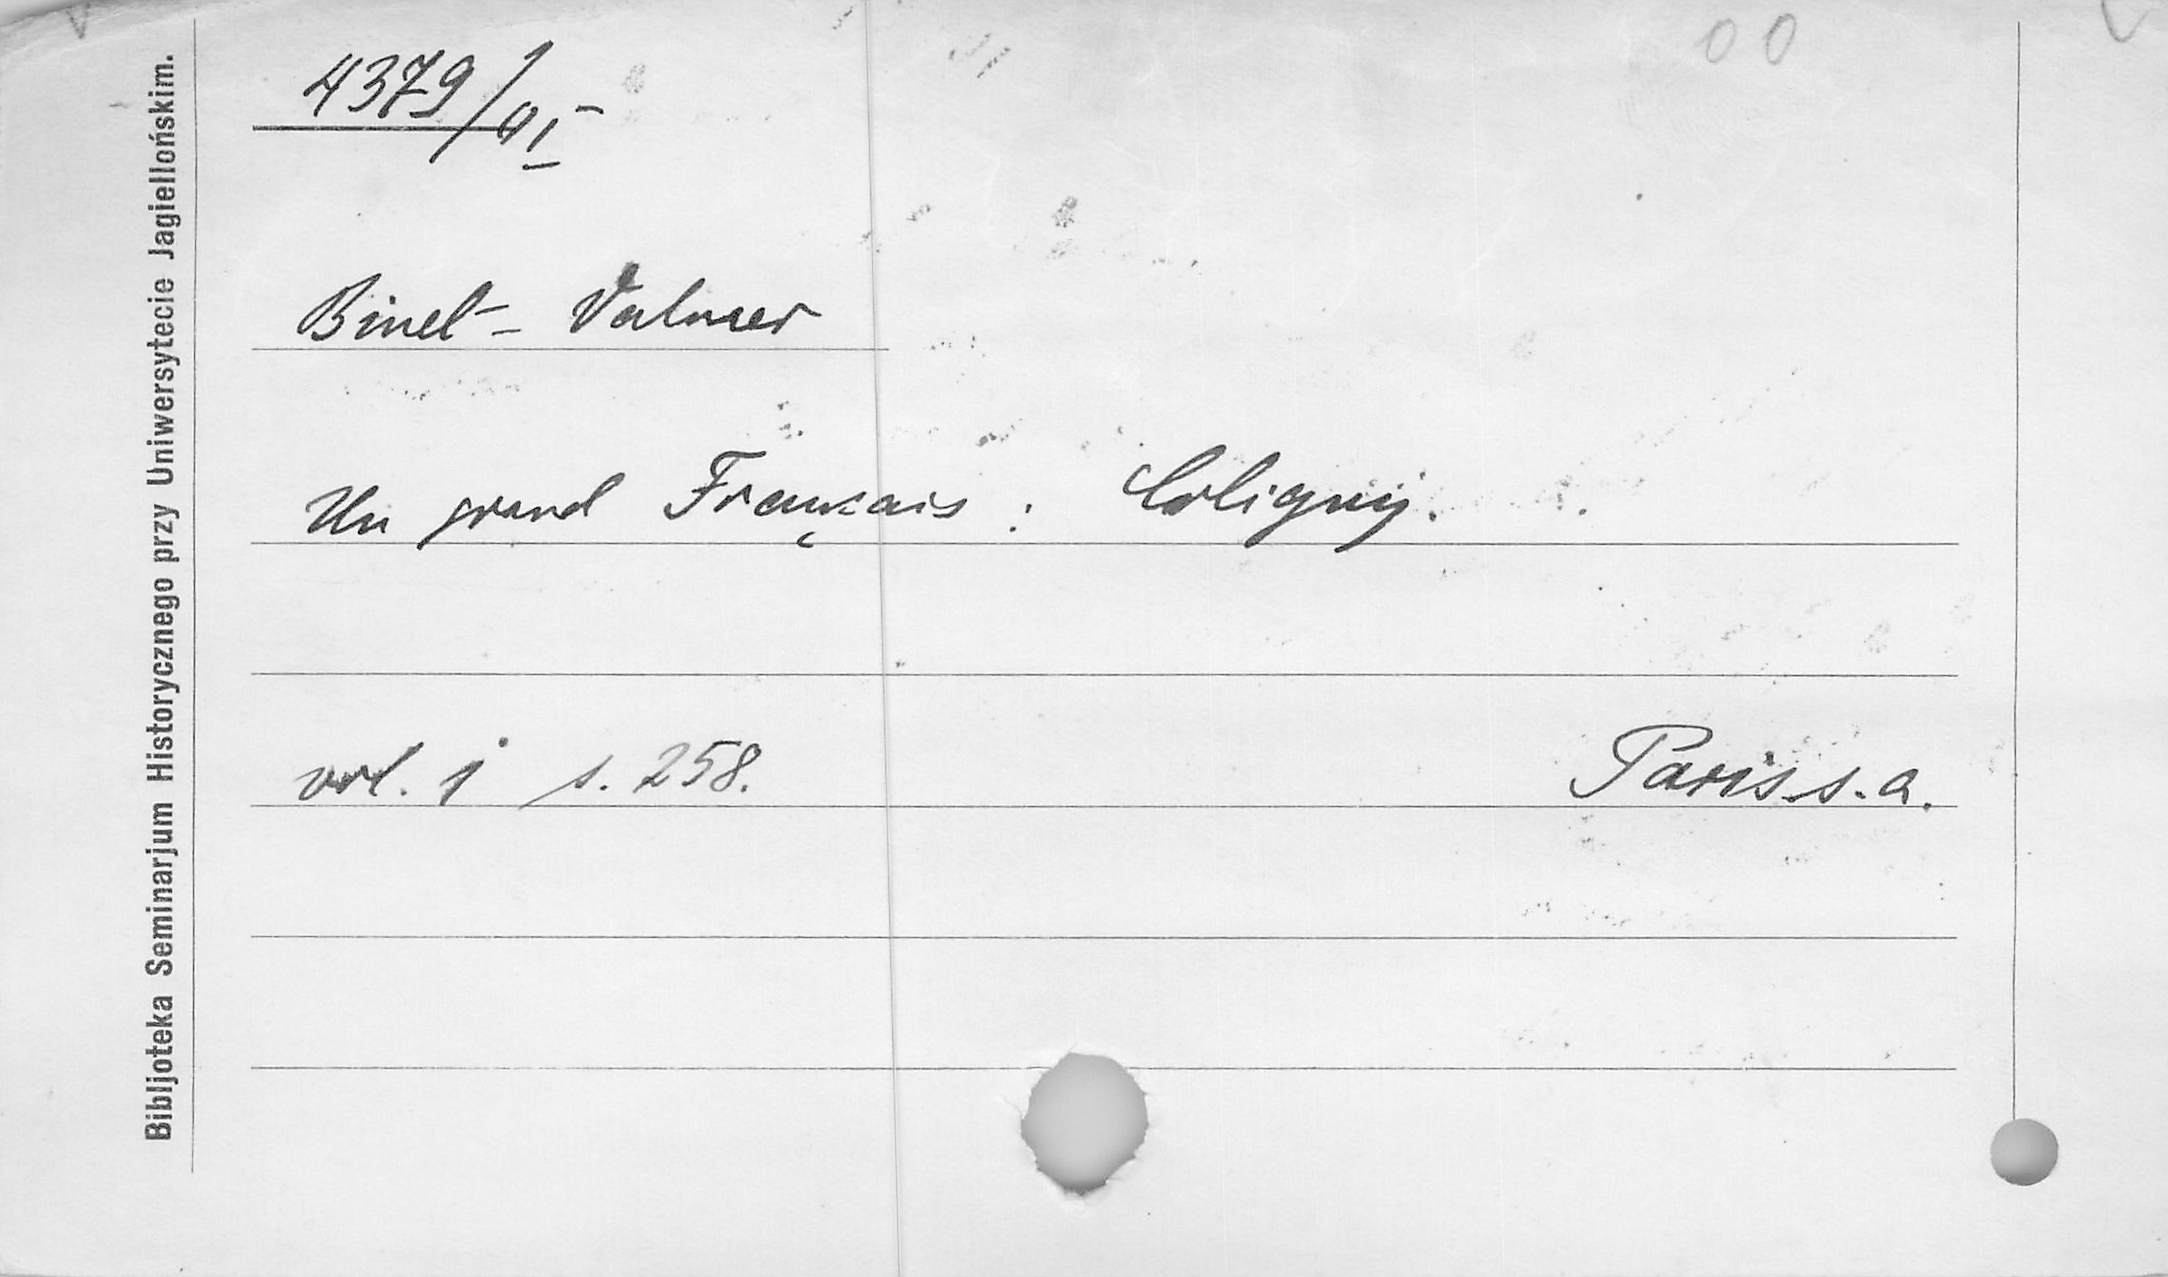 Bibljoteka Seminarjum Historycznego przy Uniwersytecie Jagiellońskim.
00
4379/VI
Binet-Valmer
Un grand Français : Coligny.
vol. 1 s. 258. Paris s. a.